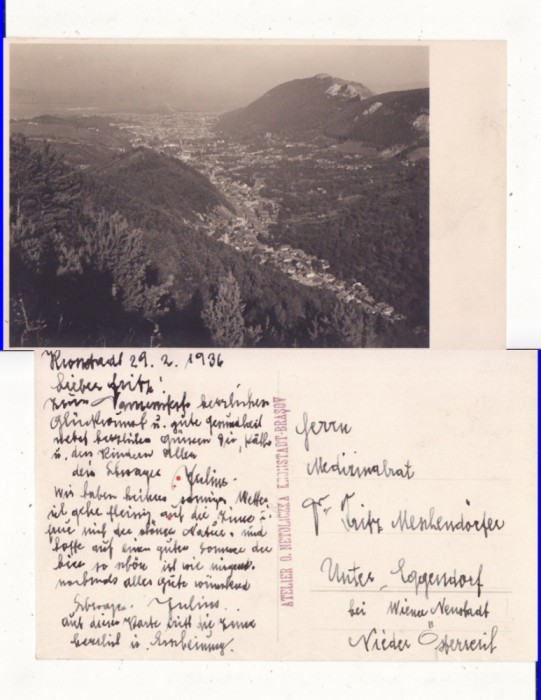 Kronstadt 29. 2. 1936
Lieber Fritz!
Zum Namensfest herzlichen
Glückwunsch u. gute Gesundheit
nebst herzlichen Grüssen Dir, Käthe
u. den Kindern Allen
dein Schwager Julius.
Wir haben heiteres sonniges Wetter
ich gehe fleissig auf die Zinne u.
freue mich der schönen Natur. und
hoffe auf einen guten Sommer der
hier so schön ist wie nirgends.
nochmals alles Gute wünschend
Schwager Julius.
auf dieser Karte tritt die Zinne
herrlich in Erscheinung.
ATELIER O. NETOLICZKA KRONSTADT-BRAŞOV
Herrn
Medizinalrat
Dr Fritz Meshendörfer
Unter Eggendorf
bei Wiena Neustadt
Nieder Österreich